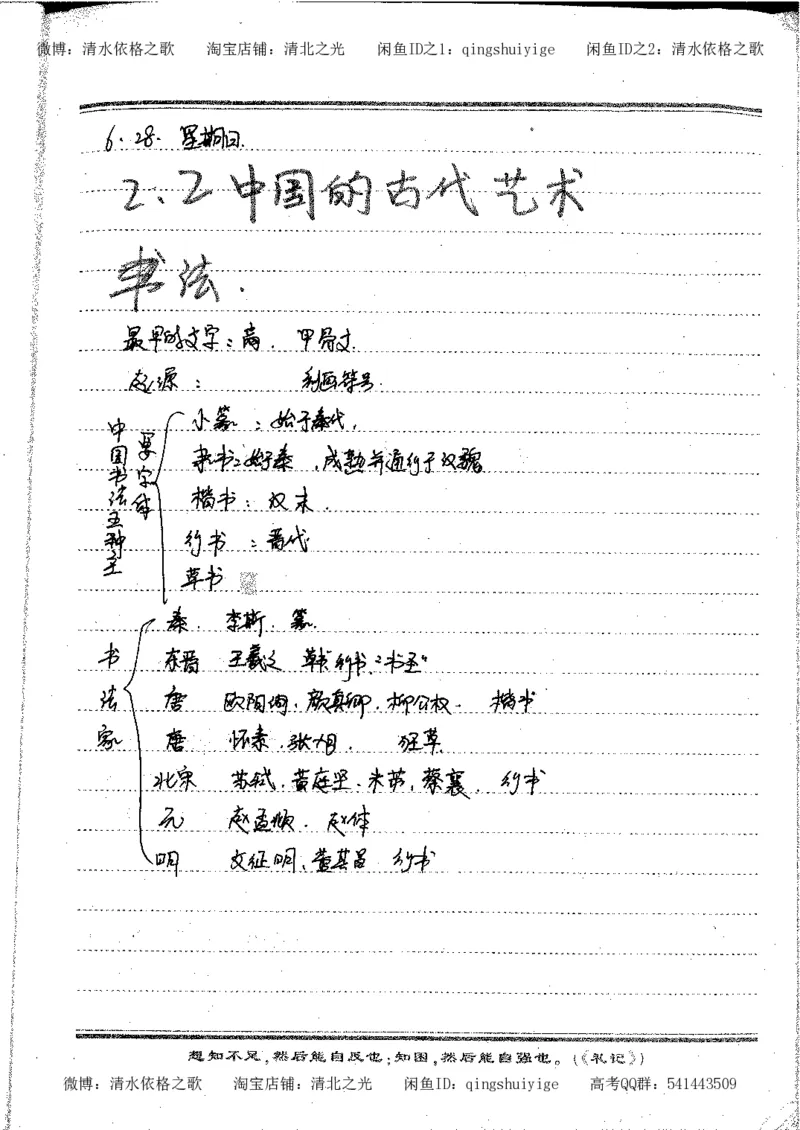 微博：清水依格之歌 淘宝店铺：清北之光 闲鱼ID之1：qingshuiyige 闲鱼ID之2：清水依格之歌
6.28. 星期日.
2.2 中国的古代艺术
书法.
最早的文字：商. 甲骨文
起源： 刻画符号.
中国书法五种主要字体
小篆：始于秦代,
隶书：始于秦, 成熟并通行于汉魏
楷书：汉末.
行书：晋代
草书
书法家
秦. 李斯. 篆.
东晋 王羲之 草书 行书."书圣"
唐 欧阳询,颜真卿,柳公权. 楷书
唐 怀素,张旭. 狂草
北宋 苏轼,黄庭坚.米芾,蔡襄. 行书
元 赵孟頫. 赵体
明 文征明、董其昌 行书
知不足,然后能自反也;知困,然后能自强也。(《礼记》)
微博：清水依格之歌 淘宝店铺：清北之光 闲鱼ID：qingshuiyige 高考QQ群：541443509